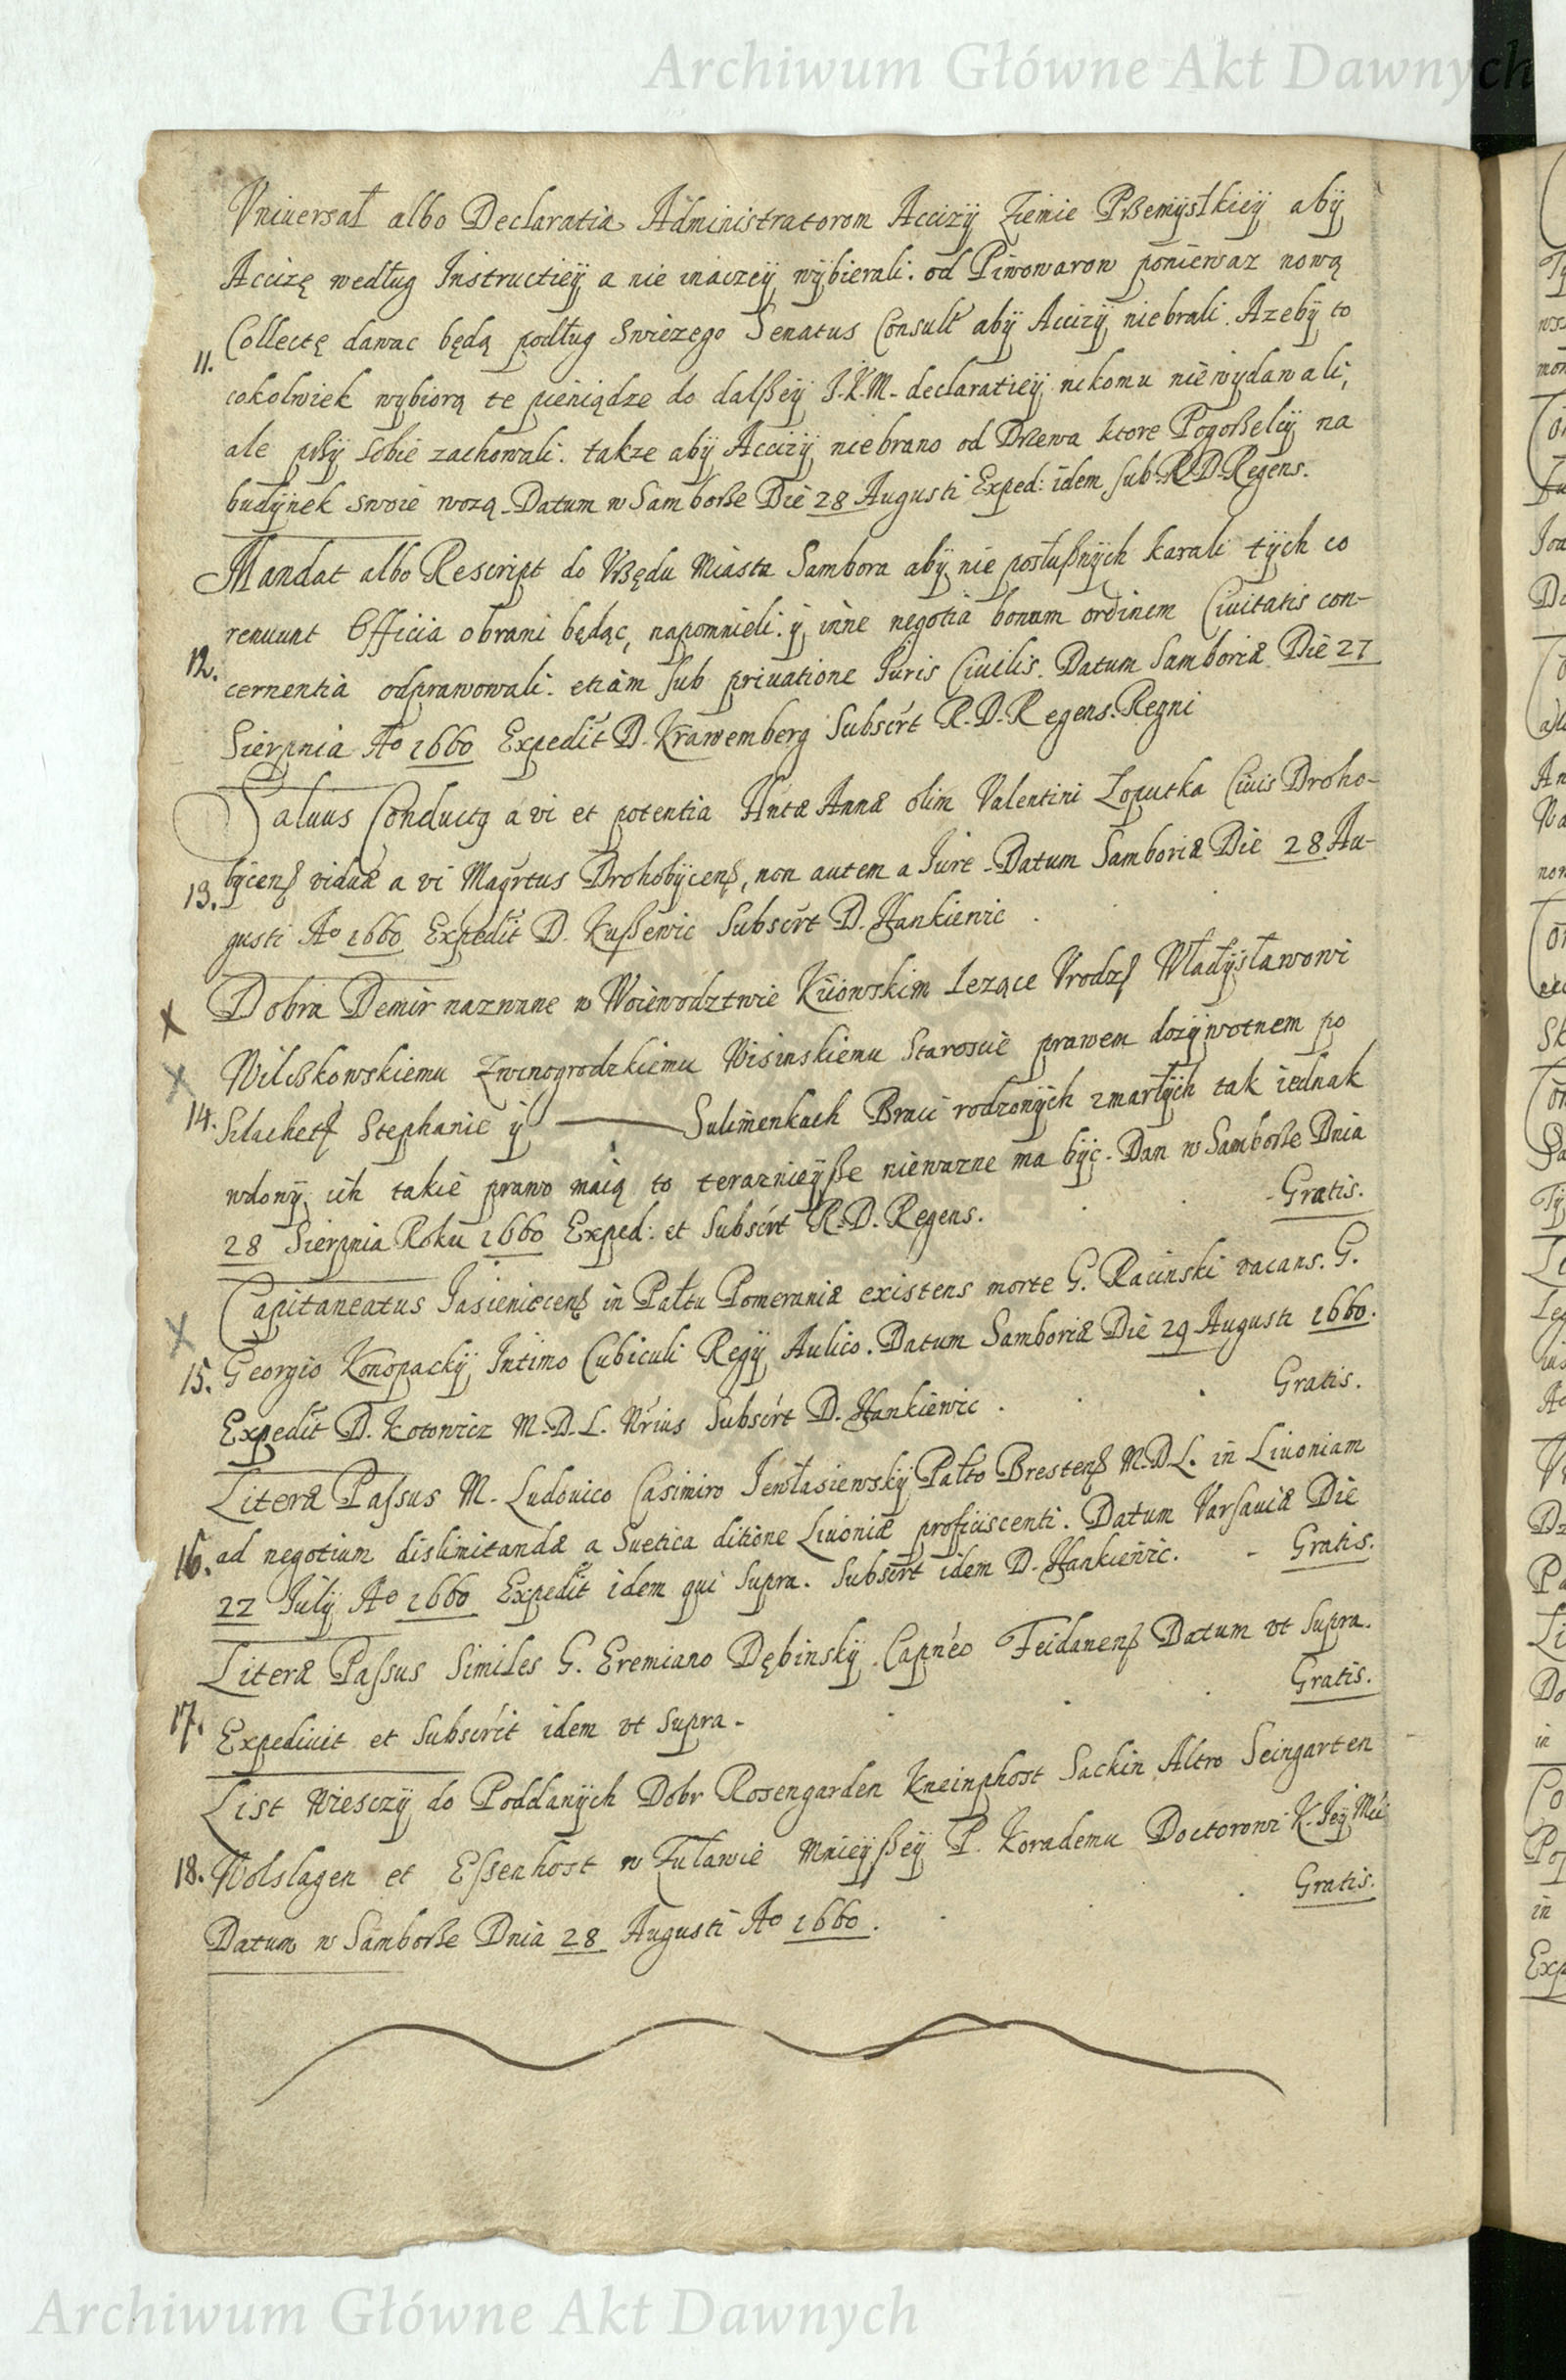 Archiwum Główne Akt Dawnych
Vniuersał albo Declaratia Administratorom Accizy Ziemie Przemyslkiey aby
Accizę według Instructiey a nie inaczey wybierali. od Piwowarow poniewaz nową
Collectę dawac będą podług swiezego Senatus Consult aby Accizy niebrali. Azeby to
11.
cokolwiek wybiorą te pieniądze do dalßey J.K.M. declaratiey nikomu niewydawali,
ale przy sobie zachowali. takze aby Accizy niebrano od Drzewa ktore Pogorzelcy na
budynek swoie wozą. Datum w Samborze Die 28 Augusti Exped: idem sub R.D. Regens.
Mandat albo Rescript do Vrzędu Miasta Sambora aby nie posłußnych karali tych co
renuunt Officia obrani będąc, napomnieli. y inne negotia bonum ordinem Ciuitatis con-
12.
cernentia odprawowali. etiam sub priuatione Iuris Ciuilis. Datum Samboriæ Die 27
Sierpnia Aº 1660 Expedit D. Krawemberg Subscrt R.D. Regens. Regni
Saluus Conductq a vi et potentia Hntæ Annæ olim Valentini Łoputka Ciuis Droho-
bycenß viduæ a vi Magrtus Drohobycenß, non autem a Iure. Datum Samboriæ Die 28 Au-
13.
gusti Aº 1660 Expedit D. Kußewic Subscrt D. Hankiewic
Dobra Demir nazwane w Woiewodztwie Kiiowskim Lezące Vrodzß Władysławowi
X
Wilczkowskiemu Zwinogrodzkiemu Wisinskiemu Staroscie prawem dozywotnem po
X
14.
Szlachetß Stephanie y ——— Sulimenkach Braci rodzonych zmarłych tak iednak
wdowy ich takie prawo maią to teraznieyße niewazne ma byc. Dan w Samborze Dnia
28 Sierpnia Roku 1660 Exped: et Subscrt R.D. Regens. - Gratis.
Capitaneatus Jasieniecenß in Pałtu Pomeraniæ existens morte G. Racinski vacans. G.
X
15. Georgio Konopacky Intimo Cubiculi Regy Aulico. Datum Samboriæ Die 29 Augusti 1660.
Expedit D. Kotowicz M.D.L. Nrius Subscrt D. Hankiewic. Gratis.
Literæ Passus M. Ludouico Casimiro Jewłasiewsky Pałto Brestenß M.D.L. in Liuoniam
16. ad negotium dislimitandæ a Suetica ditione Liuoniæ proficiscenti. Datum Varsauiæ Die
22 July Aº 1660 Expedit idem qui supra. Subscrt idem D. Hankiewic. - Gratis.
Literæ Passus Similes G. Eremiano Dębinsky. Capneo Feidanenß Datum vt supra.
17. Gratis.
Expediuit et Subscrit idem vt supra.
List Wiesczy do Poddanych Dobr Rosengarden Kneinphost Sackin Altro Seingarten
18. Wolslagen et Essenhost w Zuławie Mnieyßey P. Korademu Doctorowi K. Jey Mci
Gratis.
Datum w Samborze Dnia 28 Augusti Aº 1660.
Archiwum Główne Akt Dawnych